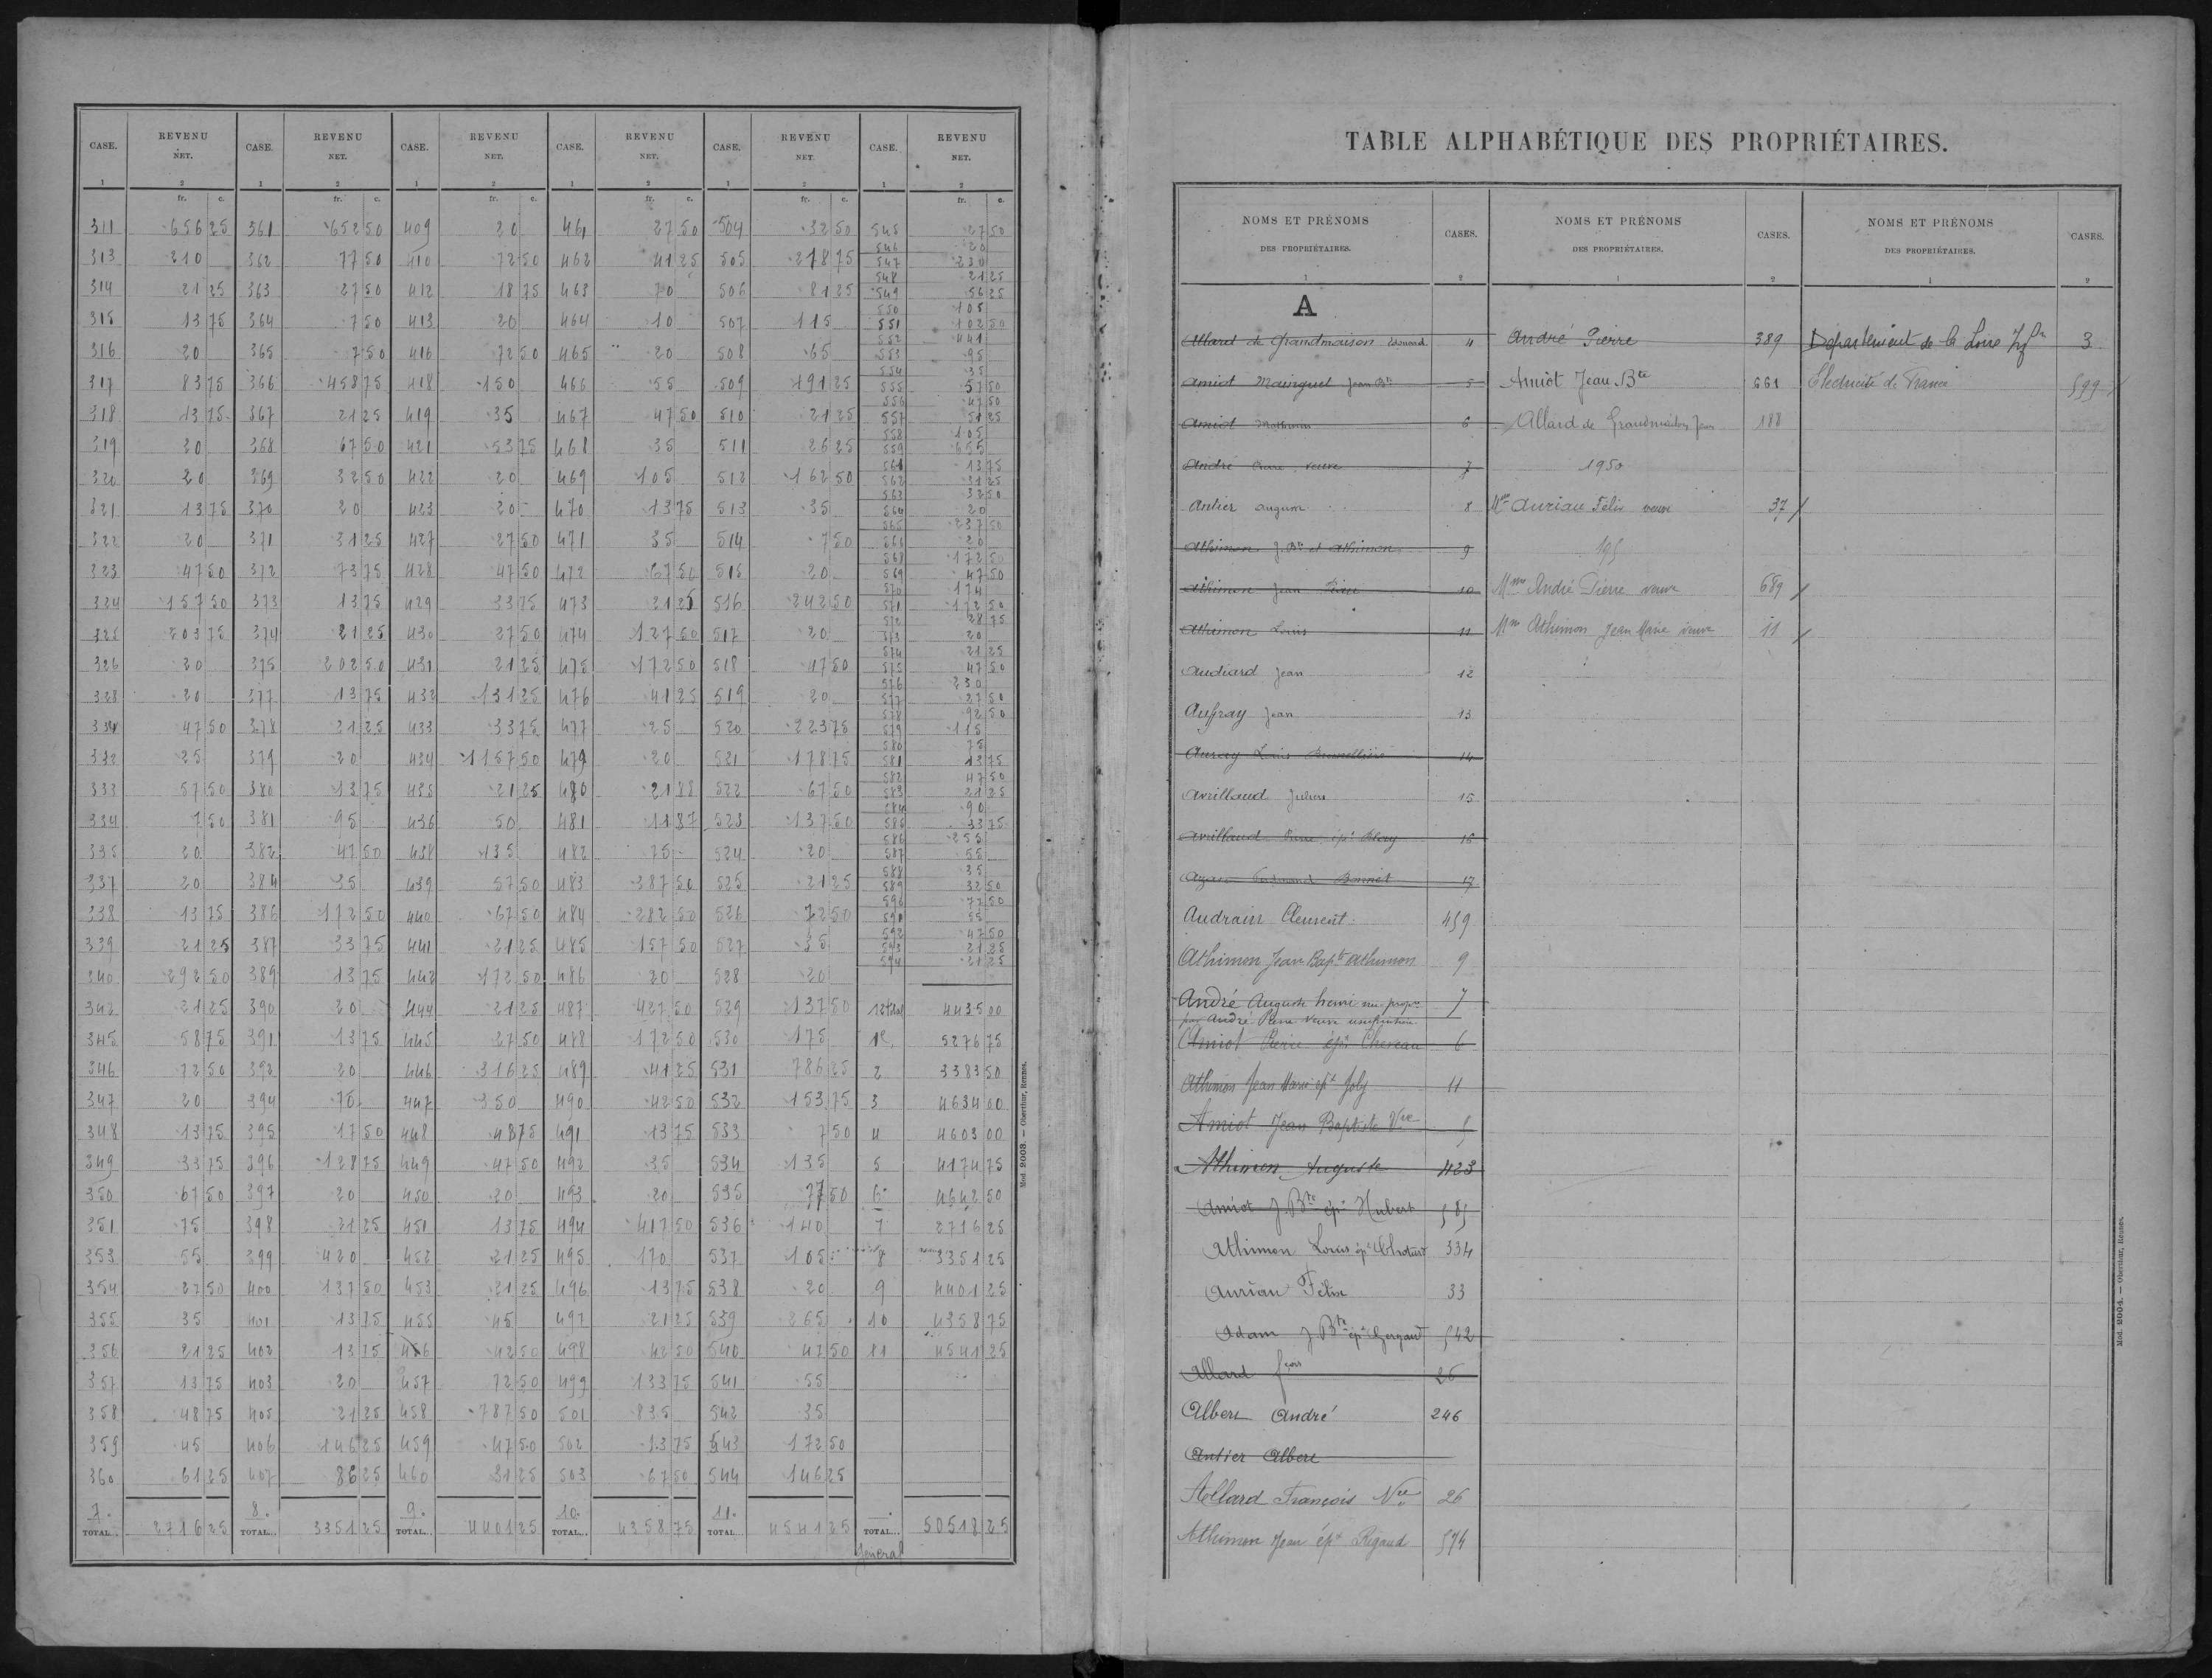 CASE. REVENU NET. CASE. REVENU NET. CASE. REVENU NET. CASE. REVENU NET. CASE. REVENU NET. CASE. REVENU NET.
1 2 1 2 1 2 1 2 1 2 1 2
fr. c. fr. c. fr. c. fr. c. fr. c. fr. c.
311 656 25 361 652 50 409 20 461 27 50 504 32 50 545 27 50
546 20
313 210 362 77 50 410 72 50 462 41 25 505 218 75 547 230
548 21 25
314 21 25 363 27 50 412 18 75 463 70 506 81 25 549 56 25
550 105
315 13 75 364 7 50 413 20 464 10 507 115 551 102 50
552 441
316 20 365 7 50 416 72 50 465 20 508 65 553 95
554 35
317 83 75 366 458 75 418 150 466 55 509 191 25 555 57 50
556 47 50
318 13 75 367 21 25 419 35 467 47 50 510 21 25 557 51 25
558 105
319 20 368 67 50 421 53 75 468 35 511 26 25 559 655
561 13 75
320 20 369 32 50 422 20 469 105 512 162 50 562 31 25
563 32 50
321 13 75 370 20 423 20 470 13 75 513 35 560 20
565 237 50
322 20 371 31 25 427 27 50 471 35 514 7 50 566 20
568 172 50
323 47 50 372 73 75 428 47 50 472 67 50 515 20 569 47 50
570 174
324 157 50 373 13 75 429 33 75 473 21 25 516 242 50 571 172 50
572 28 75
325 203 75 374 21 25 430 27 50 474 127 50 517 20 573 20
574 21 25
326 20 375 202 50 431 21 25 475 172 50 518 47 50 575 47 50
576 230
328 20 377 13 75 432 131 25 476 41 25 519 20 577 27 50
578 92 50
331 47 50 378 21 25 433 33 75 477 25 520 223 75 579 115
580 75
332 25 379 20 434 1157 50 479 20 521 178 75 581 13 75
582 47 50
333 57 50 380 13 75 435 21 25 480 21 88 522 67 50 583 21 25
584 90
334 7 50 381 95 436 50 481 11 87 523 137 50 585 33 75
586 255
335 20 382 47 50 438 135 482 75 524 20 587 55
588 35
337 20 384 35 439 57 50 483 387 50 525 21 25 589 32 50
590 77 50
338 13 75 386 172 50 440 67 50 484 282 50 526 72 50 591 55
592 47 50
339 21 25 387 33 75 441 21 25 485 157 50 527 35 593 21 25
594 21 25
340 292 50 389 13 75 442 172 50 486 20 528 20
342 21 25 390 20 444 21 25 487 427 50 529 137 50 12 total 4435 00
345 58 75 391 13 75 445 27 50 488 172 50 530 175 1e. 5276 75
346 72 50 392 20 446 316 25 489 41 25 531 786 25 2 3383 50
347 20 394 70 447 350 490 42 50 532 153 75 3 4634 00
348 13 75 395 17 50 448 48 75 491 13 75 533 7 50 4 4603 00
349 33 75 396 128 75 449 47 50 492 35 534 135 5 4174 75
350 67 50 397 20 450 20 493 20 535 77 50 6 4642 50
351 75 398 21 25 451 13 75 494 417 50 536 140 7 2716 25
353 55 399 420 452 21 25 495 170 537 105 8 3351 25
354 27 50 400 137 50 453 21 25 496 13 75 538 20 9 4401 25
355 35 401 13 75 455 45 497 21 25 539 265 10 4358 75
356 21 25 402 13 75 456 42 50 498 42 50 540 47 50 11 4541 25
357 13 75 403 20 457 72 50 499 133 75 541 55
358 48 75 405 21 25 458 787 50 501 835 542 35
359 45 406 146 25 459 47 50 502 13 75 543 172 50
360 61 25 407 86 25 460 31 25 503 67 50 544 146 25
7. 8. 9. 10. 11.
TOTAL.. 2716 25 TOTAL... 3351 25 TOTAL... 4401 25 TOTAL... 4358 75 TOTAL... 4541 25 TOTAL... 50518 25
General
Mod. 2003. — Oberthur, Rennes.
TABLE ALPHABÉTIQUE DES PROPRIÉTAIRES.
NOMS ET PRÉNOMS DES PROPRIÉTAIRES. CASES. NOMS ET PRÉNOMS DES PROPRIÉTAIRES. CASES. NOMS ET PRÉNOMS DES PROPRIÉTAIRES. CASES.
1 2 1 2 1 2
A
Allard de Grandmaison Edouard 4 André Pierre 389 Département de la Loire Infre 3
Amiot Mainguet Jean Bte 5 Amiot Jean Bte 661 Electricité de France 599
Amiot Mathurin 6 Allard de Grandmaison Jean 188
André Pierre veuve 7 1950
Antier Auguste 8 Mme Auriau Félix veuve 37
Athimon J. Bte et Athimon 9 195
Athimon Jean Pierre 10 Mme André Pierre veuve 689
Athimon Louis 11 Mme Athimon Jean Marie veuve 11
Audiard Jean 12
Auffray Jean 13
Auray Louis 14
Avrillaud Julien 15
Avrillaud Pierre épx 16
Bonnet 17
Audrain Clement 459
Athimon Jean Bapte Athimon 9
André Auguste henri nu-propre 7
par André Pierre veuve usufruitière
Amiot Pierre épx Chereau 6
Athimon Jean Marie épx Joly 11
Amiot Jean Baptiste Vve 5
Athimon Auguste 423
Amiot J. Bte épx Hubert 585
Athimon Louis épx 334
Auriau Félix 33
Adam J. Bte épx 542
Allard fçois 26
Albert André 246
Antier Albert
Allard François Vve 26
Athimon Jean épx Rigaud 574
Mod. 2004. — Oberthur, Rennes.